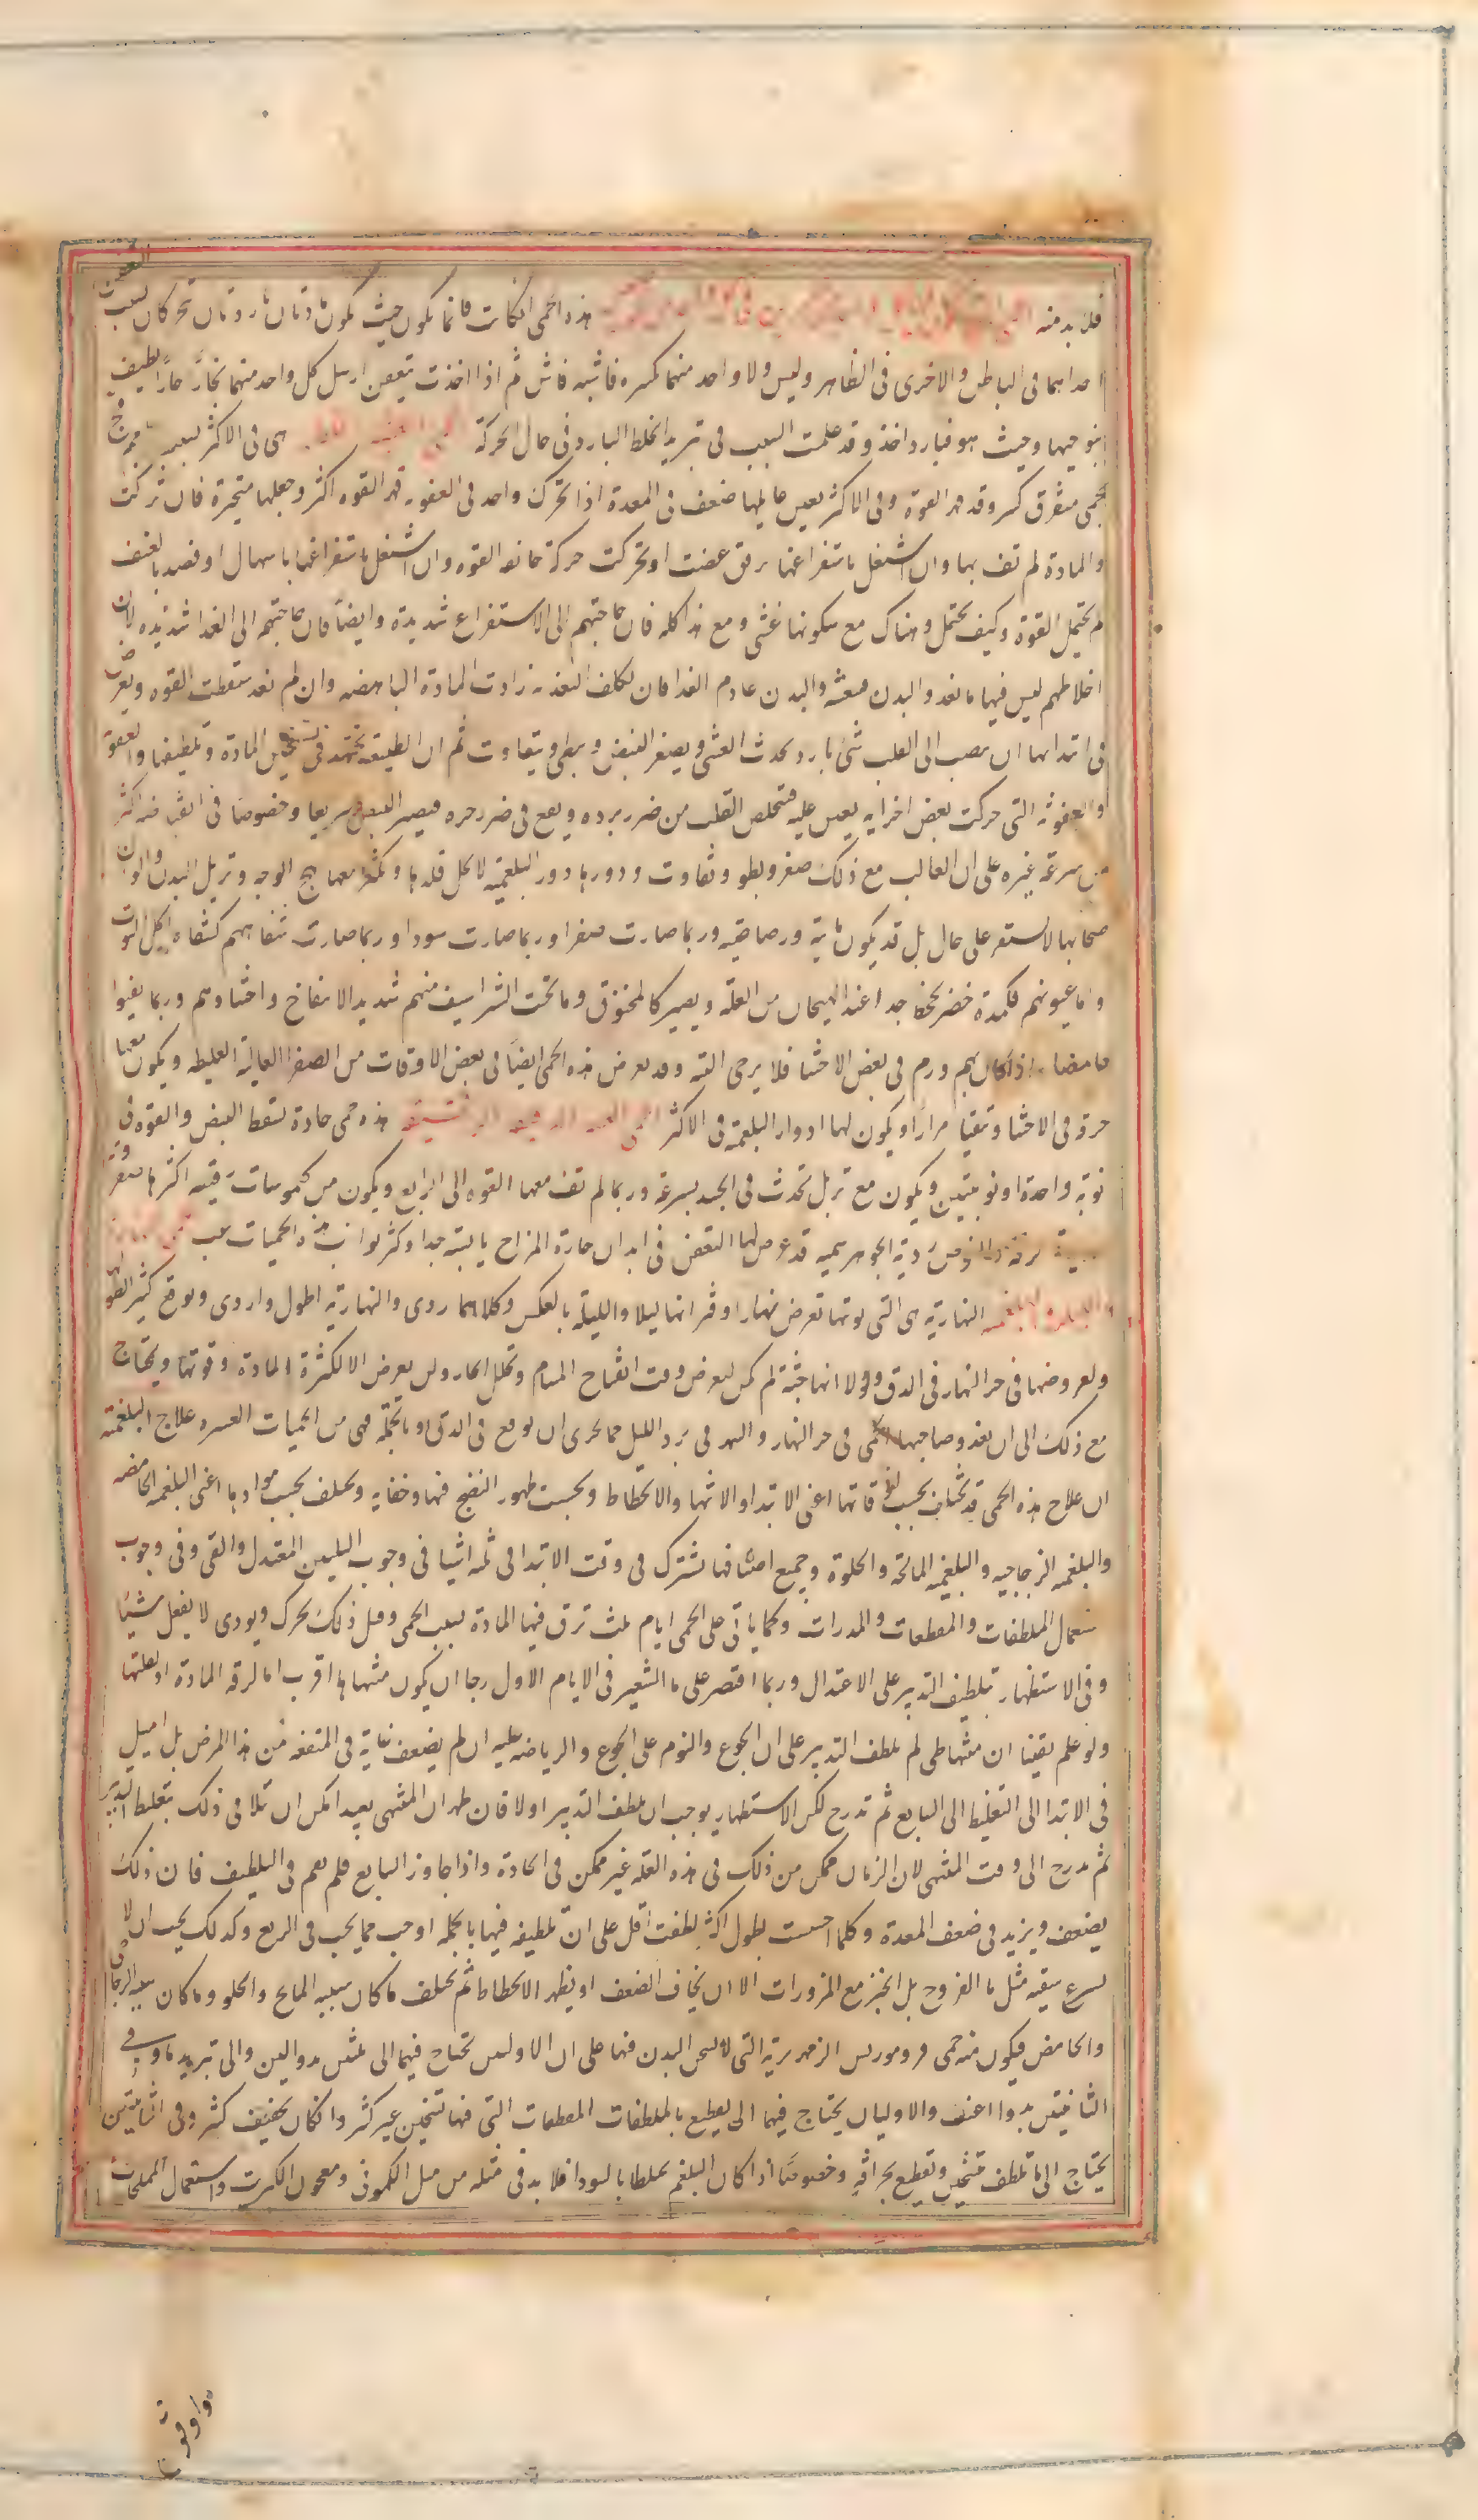 فلا بد منه هذه الحمى انكانت فانما يكون حيث يكون مادتان باردتان تحركان لسبب العفن
احداهما فى الباطن والاخرى فى الظاهر وليس ولا واحد منهما كثيره فاشيه فاش ثم اذا اخذت تتعفن ارسل كل واحد منهما بخارا حارا لطيف
بنواحيها وحيث هو فبارد واخذ وقد علمت السبب فى تبريد الخلط البارد فى حال الحركة هى فى الاكثر بلغميه
بلحمى متفرق كثير وقد قهر القوة وفى الاكثر يعين عليها ضعف فى المعدة اذا تحركت واحد فى العفونه قهر القوه اكثر وجعلها متحيرة فان تركت
والمادة لم تف بها وان اشتغل باستفراغها برفق عصت او تحركت حركة خانقه القوه وان اشتغل باستفراغها باسهال او فصد بالعنف
لم يحتمل القوة وكيف يحتمل وهناك مع سكونها غشى ومع هذا كله فان حاجتهم الى الاستفراغ شديدة وايضا فان حاجتهم الى الغذا شديده لان
اخلاطهم ليس فيها ما يغذو البدن فبعثه والبدن عادم الغذا فان تكلف التغذيه زادت المادة الباهضه وان لم تغذ سقطت القوه ويعرض
فى ابتدائها ان ينصب الى القلب شئ بارد يحدث الغشى ويصغر النبض ويبطئ ويتفاوت ثم ان الطبيعه تجتهد فى تسخين المادة وتلطيفها والعفونة
والعفونه التى حركت بعض اجزايه يعين عليه فيتخلص القلب من ضرر برده ويقع فى ضرر حره فيصير النبض سريعا وخصوصا فى انقباضه اكثر
من سرعة غيره على ان الغالب مع ذلك صغر وبطو وتفاوت ودورها دور البلغميه لاجل قلتها ويكثر معها تهيج الوجه وتربل البدن والوان
اصحابها لا تستقر على حال بل قد يكون مائية ورصاصيه وربما صارت صفرا وربما صارت سودا وربما صارت شفاههم كشفاه اكل التوت
واما عيونهم فكمدة خضر تجحظ جدا عند الهيجان من العله ويصير كالمخنوق وما تحت الشراسيف منهم شديد الانتفاخ واحشاوهم وربما يقيوا
حامضا اذا كان بهم ورم فى بعض الاحشا فلا يرجى البته وقد يعرض هذه الحمى ايضا فى بعض الاوقات من الصفرا الغالبه الغليظه ويكون معها
حرقه فى الاحشا وتقيا مرارا ويكون لها ادوار البلغمية فى الاكثر الحمى الغشيه الدقيقه الرقيقيه هذه حمى حادة تسقط النبض والقوه فى
نوبة واحدة او نوبتين ويكون مع تربل تحدث فى الجسد بسرعة وربما لم تف معها القوه الى الرابع ويكون من كيموسات رقيقه اكثرها صفراوية
ردية الجوهر سميه قد عرض لها التعفن فى ابدان حارة المزاج يابسته جدا وكثر نوايب هذه الحميات غب
والليليه البلغميه النهارية هى التى نوبتها تعرض نهارا وفتراتها ليلا والليليه بالعكس وكلاهما ردى والنهارية اطول واردى ويوقع كثيرا لطولها
ولعروضها فى حر النهار فى الدق ولولا انها خبيثة لم تكن ليعرض وقت انفتاح المسام وتحلل البخار وليس يعرض الا لكثرة المادة وقوتها ويحتاج
مع ذلك الى ان يغذو صاحبها الحمى فى حر النهار والسهر فى برد الليل مما يحرى ان يوقع فى الدق وبالجملة هى من الحميات العسره علاج البلغمية
ان علاج هذه الحمى قد يختلف بحسب اوقاتها اعنى الابتدا والانتها والانحطاط وبحسب ظهور النضج فيها وخفايه ويختلف بحسب موادها اعنى البلغمه الحامضه
والبلغمه الزجاجيه والبلغميه المالحة والحلوة وجميع اصنافها تشترك فى وقت الابتدا فى ثلثه اشيا فى وجوب التليين المعتدل والقى وفى وجوب
استعمال الملطفات والمقطعات والمدرات وكما ياتى على الحمى ايام ثلث ترق فيها المادة بسبب الحمى وقبل ذلك يحرك ويودى لا يفعل شيئا
وفى الاستظهار بتلطيف التدبير على الاعتدال وربما اقتصر على ما الشعير فى الايام الاول رجا ان يكون منتهاها اقرب اما لرقه المادة او لقلتها
ولو علم يقينا ان منتهاها بطى لم يلطف التدبير على ان الجوع والنوم على الجوع والرياضه عليه ان لم يضعف غاية فى المنفعه من هذا المرض بل اميل
فى الابتدا الى التغليظ الى السابع ثم تدرج لكن الاستظهار يوجب ان يلطف التدبير اولا فان ظهر ان المنتهى بعيد امكن ان تلافى ذلك بتغليظ التدبير
ثم تدرج الى وقت المنتهى لان الزمان ممكن من ذلك فى هذه العله غير ممكن فى الحادة واذا جاوز السابع فلم يعم فى التلطيف فان ذلك
يضعف ويزيد فى ضعف المعدة وكلما احسست بطول اكثر لطفت اقل على ان تلطيفه فيها بالجمله اوجب مما يجب فى الربع وكذلك يجب ان لا
يسرع سقيه مثل ما الفروج بل الخبز مع المزورات الا ان يخاف الضعف او يظهر الانحطاط ثم يختلف ما كان سببه المالح والحلو وما كان سببه الزجاجى
والحامض فيكون منه حمى قروموريس الزمهريرية التى لا يسخن البدن فيها على ان الاوليين تحتاج فيها الى تليين بدوا لين والى تبريد ما وفى
الثانيتين بدوا اعنف والاوليان يحتاج فيهما الى تقطيع بالملطفات المقطعات التى فيها تسخين غير كثير وانكان بخفيف كثير وفى الثانيتين
يحتاج الى ما يلطف بتسخين وتقطيع بحرافة وخصوصا اذا كان البلغم مختلطا بالسودا فلا بد فى مثله من مثل الكمونى ومعجون الكبريت واستعمال المملحات